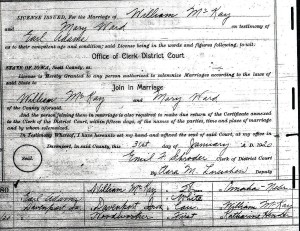 LICENSE ISSUED, For the Marriage of William McKay
and Mary Ward on testimony of
Earl Adams
as to their competent age and condition; said License being in the words and figures following, to-wit:
Office of Clerk District Court
STATE OF IOWA, Scott County, ss:
License is Hereby Granted to any person authorized to solemnize Marriages according to the laws of
said State to
Join in Marriage
William McKay and Mary Ward
of the County aforesaid.
And the person joining them in marriage is also required to make due return of the Certificate annexed
to the Clerk of the District Court, within fifteen days, of the names of the parties, time and place of marriage, and
by whom solemnized.
In Testimony Whereof, I have hereunto set my hand and affixed the seal of said Court, at my office in
Davenport, in said County, this 31st day of January A. D. 1920
Seal Clerk of District Court
By Clara M. Deputy
William McKay 28 Omaha Nebr
Earl Adams White
Davenport Ia Davenport Iowa William McKay
Woodworker First Katharine